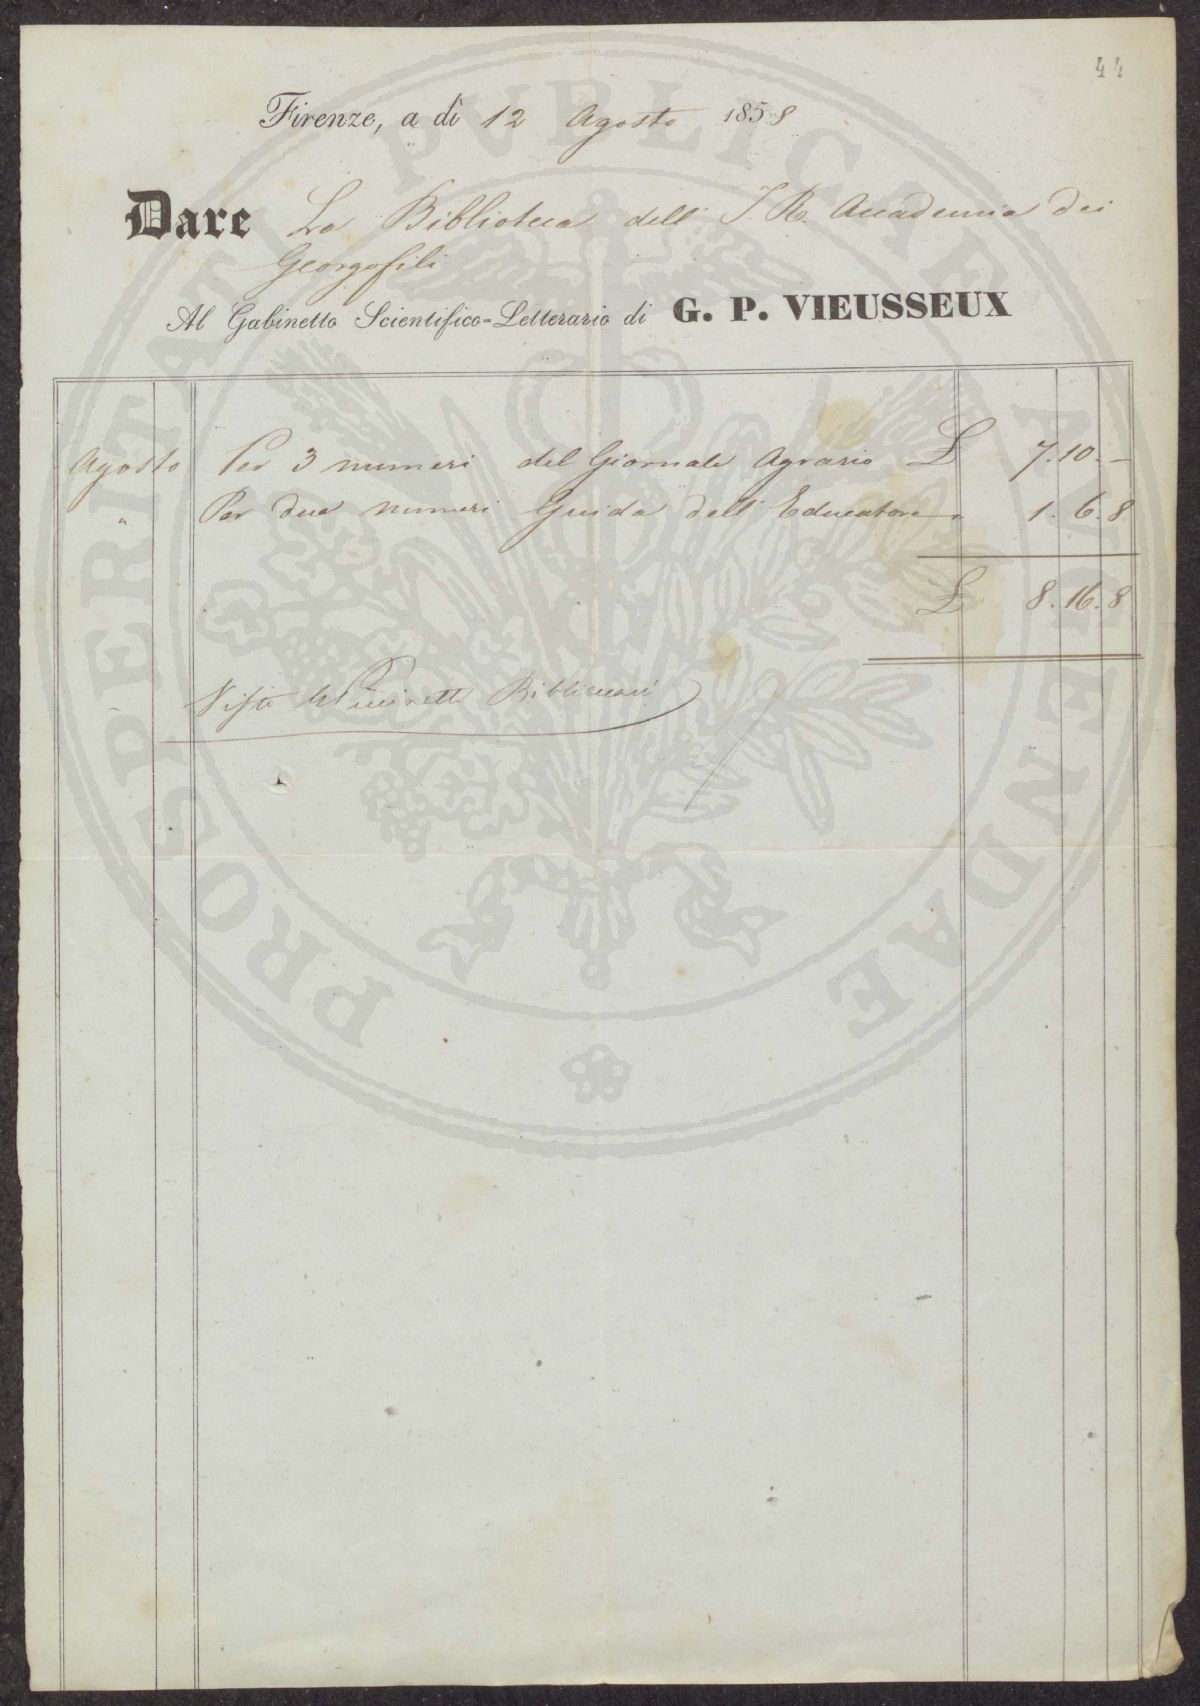 44
Firenze, a dì 12 Agosto 1858
Dare La Biblioteca dell' I. R. Accademia dei
Georgofili
Al Gabinetto Scientifico-Letterario di G. P. VIEUSSEUX
Agosto Per 3 numeri del Giornale Agrario £ 7. 10. —
" Per due numeri Guida dell' Educatore " 1. 6. 8
£ 8. 16. 8
Visto
PROSPERITATI PVBLICAE AVGENDAE